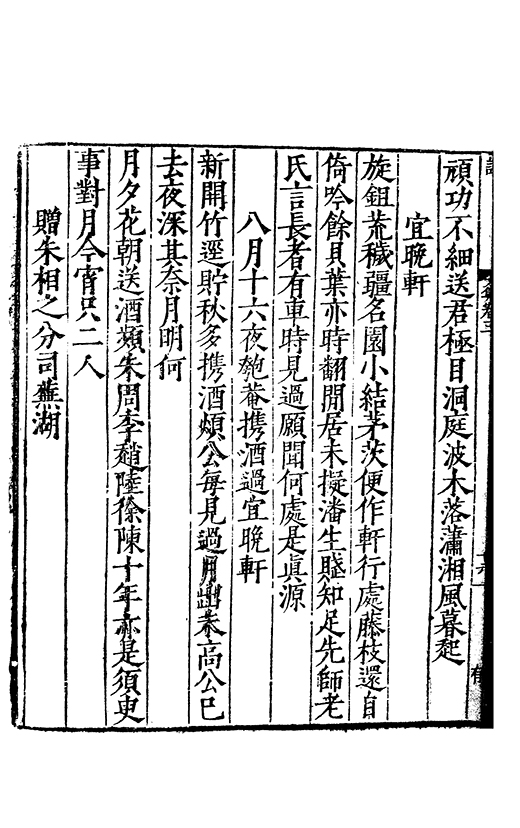 頑功不細送君極目洞庭波木落瀟湘風暮起
宜晚軒
旋鉏荒穢疆名園小結茅茨便作軒行處藤枝還自
倚吟餘貝葉亦時翻閒居未擬潘生賦知足先師老
氏言長者有車時見過願聞何處是眞源
八月十六夜匏菴携酒過宜晚軒
新開竹逕貯秋多携酒頻公每見過月出未高公已
去夜深其奈月明何
月夕花朝送酒頻朱周李趙陸徐陳十年亦是須臾
事對月今宵只二人
贈朱相之分司蕪湖